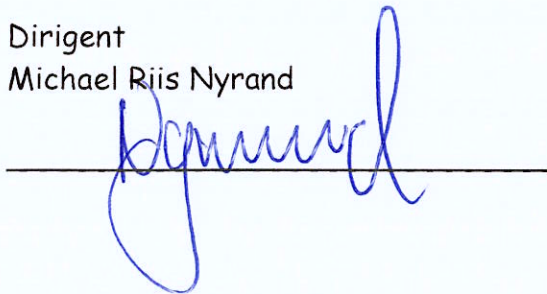 Dirigent
Michael Riis Nyrand